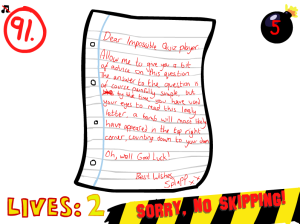 91.
5
Dear Impossible Quiz player,
Allow me to give you a bit
of advice on this question
The answer to the question is
of course painfully simple, but
by the time you have used
your eyes to read this lovely
letter, a bomb will most likely
have appeared in the top right
corner, counting down to your
Oh, well Good Luck!
Best Wishes,
Splapp xx
LIVES: 2
SORRY, NO SKIPPING!